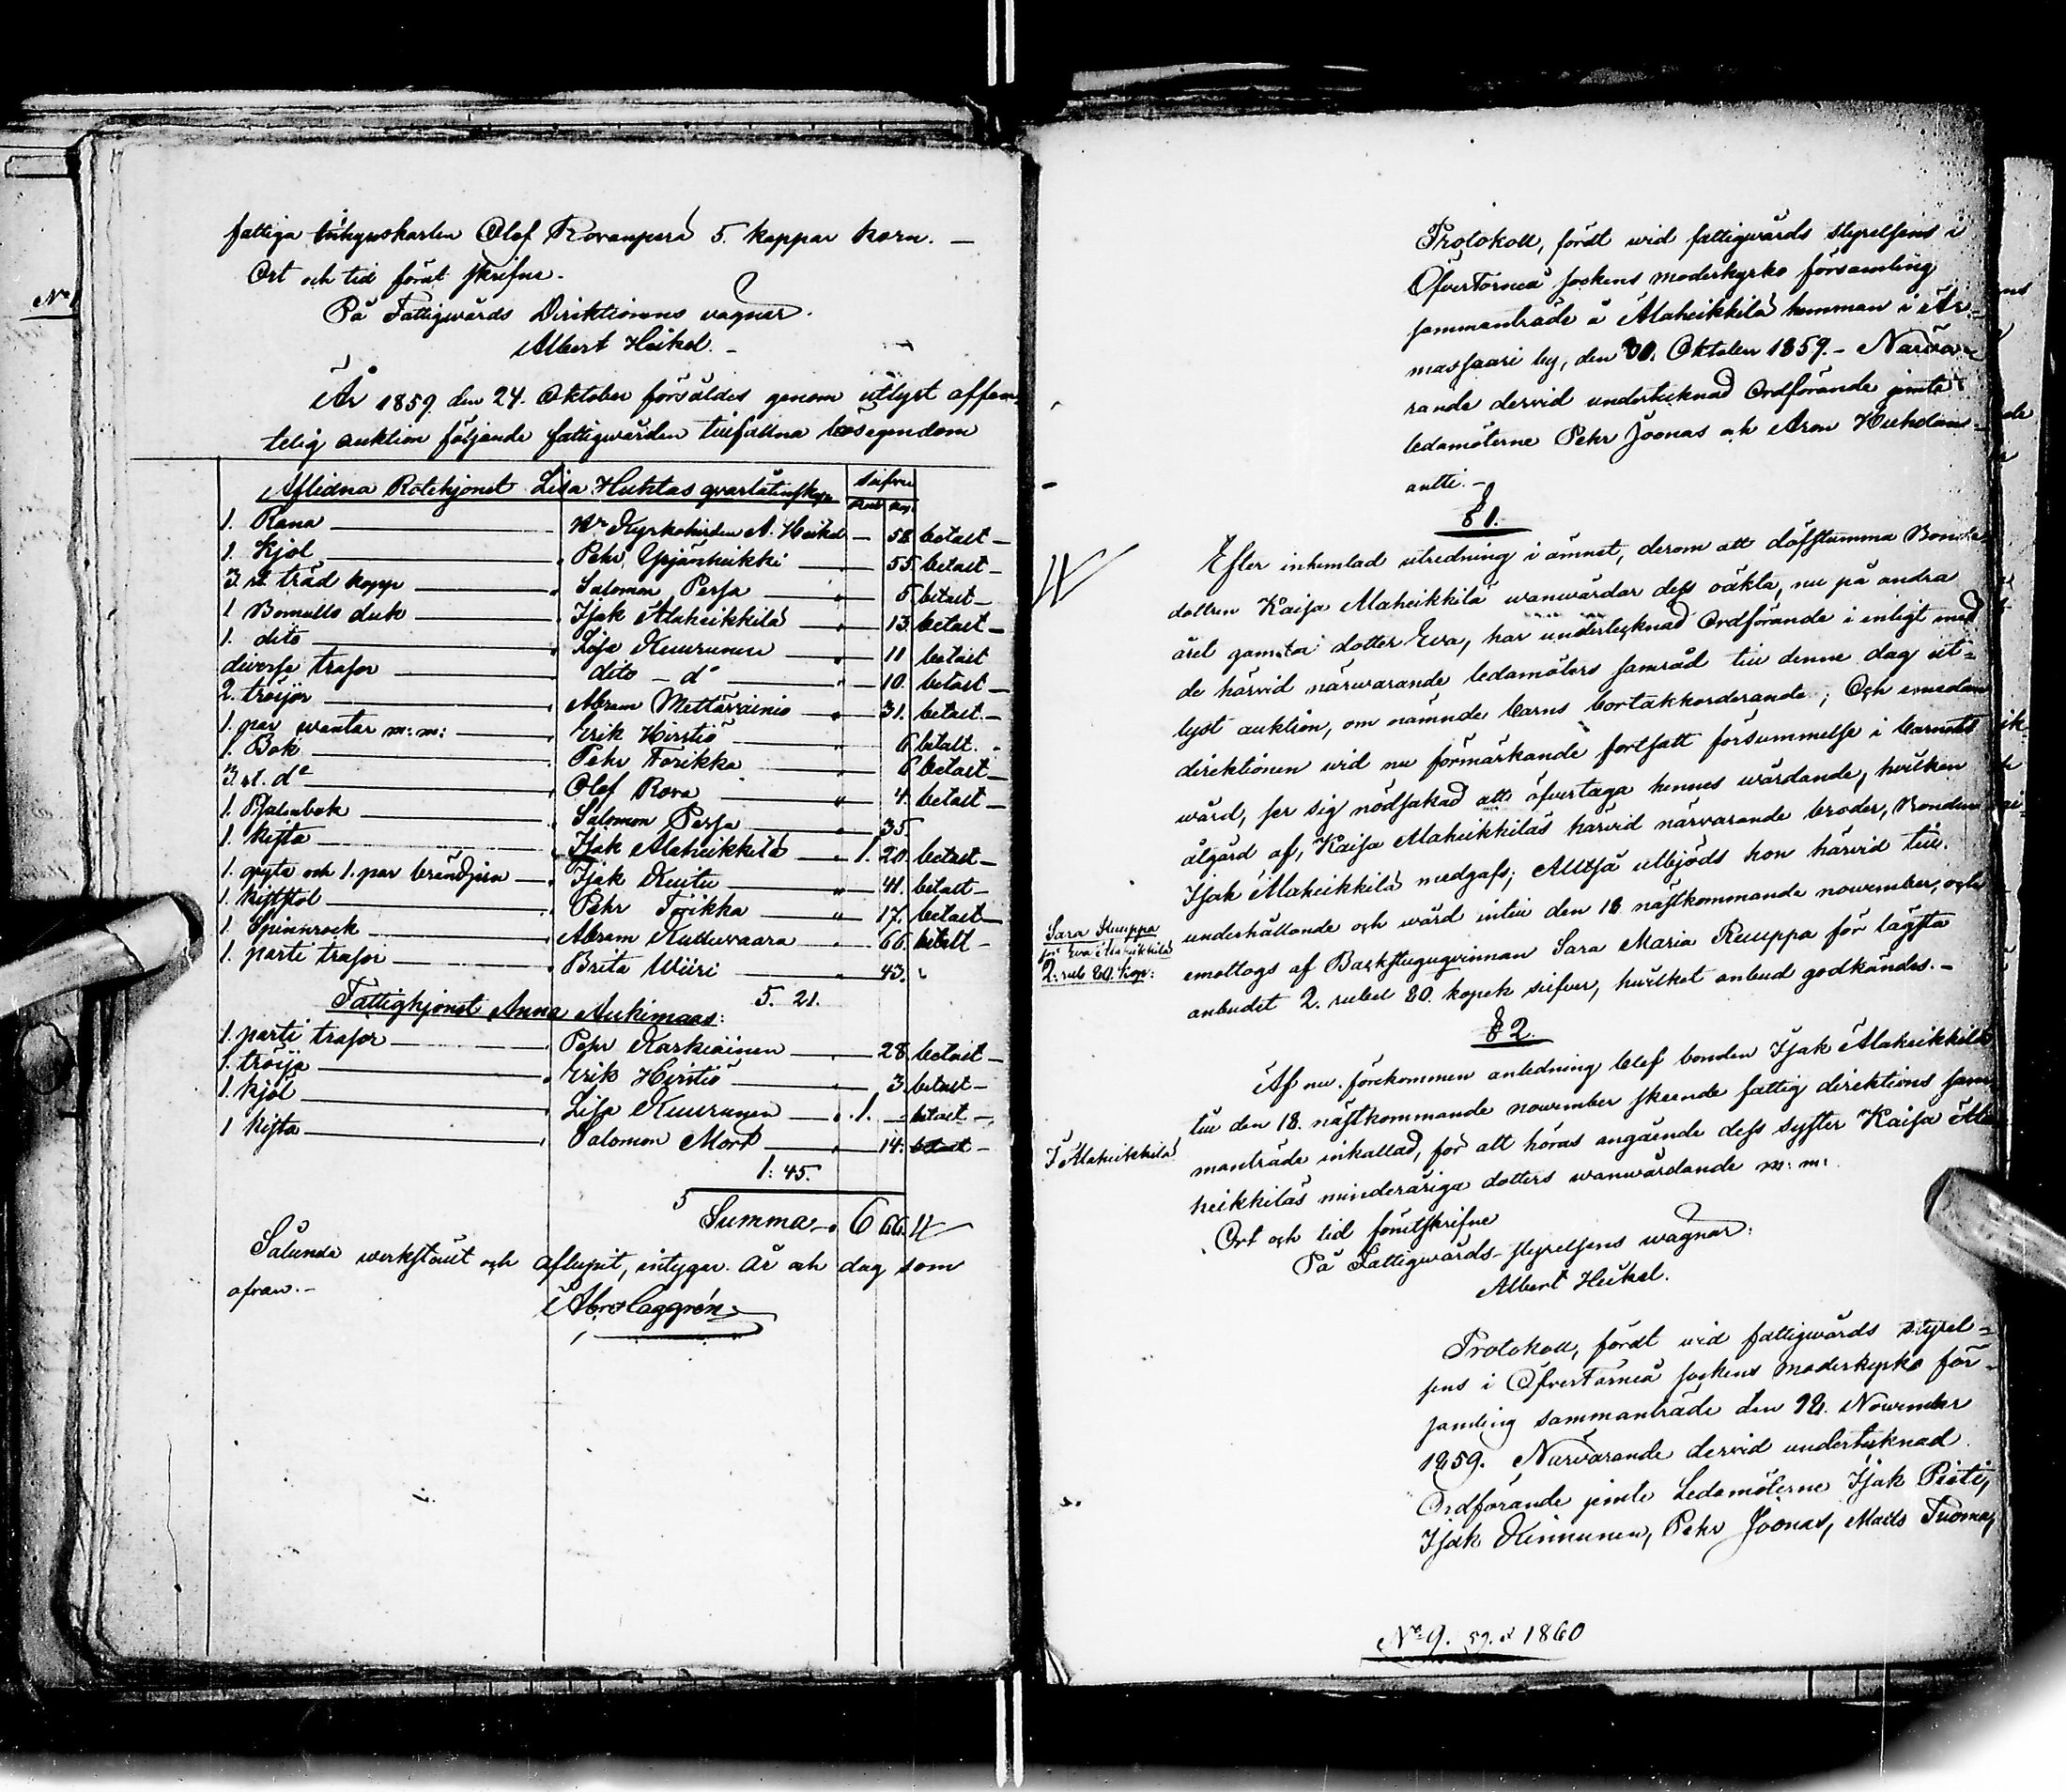 fattiga inhyseskarlen Olof Rovanperä 5. kappar korn. —
Ort och tid förut skrifne.
På Fattigwårds Direktionens vagnar.
Albert Heikel. —
År 1859 den 24. Oktober försåldes genom utlyst offen-
telig auktion följande fattigwården tillfallna lösegendom
Aflidna Rotehjonet Lisa Huhtas qvarlåtenskap silfver
1. Rana — Hr Kyrkoherden A. Heikel — 58 betalt —
1. Kjol — Pehr Yrjänheikki — 55 betalt —
3 st. träd kopp — Salomon Persa — 5 betalt —
1 Bomulls duk — Isak Alaheikkilä — 13 betalt —
1. dito — Lisa Kuurunen — 11 betalt
diverse trasor — dito – do — 10. betalt —
2. tröijor — Abram Mettävainio — 31. betalt. —
1. par wantar m: m: — Erik Hirstiö — 6 betalt.
1. Bok — Pehr Torikka — 6 betalt —
3 st. do — Olof Rova — 4. betalt —
1. Psalmbok — Salomon Persa — 35
1. kista — Isak Alaheikkilä — 1. 20. betalt —
1. gryta och 1. par brändjern — Isak Kuitu — 41. betalt —
1 kiststol — Pehr Torikka — 17. betalt —
1. Spinnrock — Abram Kuttuvaara — 66 betalt —
1. parti trasor — Brita Wiiri — 43.
5. 21.
Fattighjonet Anna Aukimaas:
1. parti trasor — Pehr Karkiainen — 28 betalt —
1. tröija — Erik Hirstiö — 3 betalt —
1. kjol — Lisa Kuurunen — 1. — betalt —
1 kista — Salomon Mort — 14. betalt —
1: 45.
Summa 6 66.
Sålunda werkstält och aflupit, intygar. År och dag som
ofvan. —
Abr Laggrén

Protokoll, fördt wid fattigwårds styrelsens i
ÖfverTorneå sockens moderkyrko församling
sammanträde å Alaheikkilä hemman i Ar-
massaari by, den 30. Oktober 1859. – Närva-
rande dervid undertecknad Ordförande jemte
ledamöterne Pehr Joonas och Aron Huhdan-
antti. —
§ 1.
Efter inhemtad utredning i ämnet, derom att döfstumma Bonde
dottren Kaisa Alaheikkilä wanwårdar dess oäkta, nu på andra
året gamla dotter Eva, har undertecknad Ordförande i enligt med
de härvid närwarande ledamöters samråd till denne dag ut-
lyst auktion, om nämnde barns bortakkorderande; Och emedan
direktionen wid nu förmärkande fortsatt försummelse i barnets
wård, ser sig nödsakad att öfvertaga hennes wårdande, hvilken
åtgärd af, Kaisa Alaheikkiläs härvid närvarande broder, Bonden
Isak Alaheikkilä medgafs; Alltså utbjöds hon härvid till
underhållande och wård intill den 18 nästkommande nowember, och
emottogs af Backstuguqvinnan Sara Maria Kuuppa för lägsta
anbudet 2. rubel 80. kopek silfver, hvilket anbud godkändes. —
Sara Kuuppa
för Eva Alaheikkilä
2. rub 80. kop:
§ 2.
Af nu förekommen anledning blef bonden Isak Alaheikkilä
till den 18. nästkommande nowember skeende fattig direktions sam-
manträde inkallad, för att höras angående dess syster Kaisa Ala
heikkiläs minderåriga dotters wanwårdande m: m:
I Alaheikkilä
Ort och tid förutskrifne
På Fattigwårds-styrelsens wagnar:
Albert Heikel.
Protokoll, fördt wid fattigwårds styrel-
sens i ÖfverTorneå sockens moderkyrko för-
samling sammanträde den 18. Nowember
1859. Närvarande dervid undertecknad
Ordförande jemte Ledamöterne Isak Pieti,
Isak Kinnunen, Pehr Joonas, Mats Tuomas,
No 9. 59. 1860